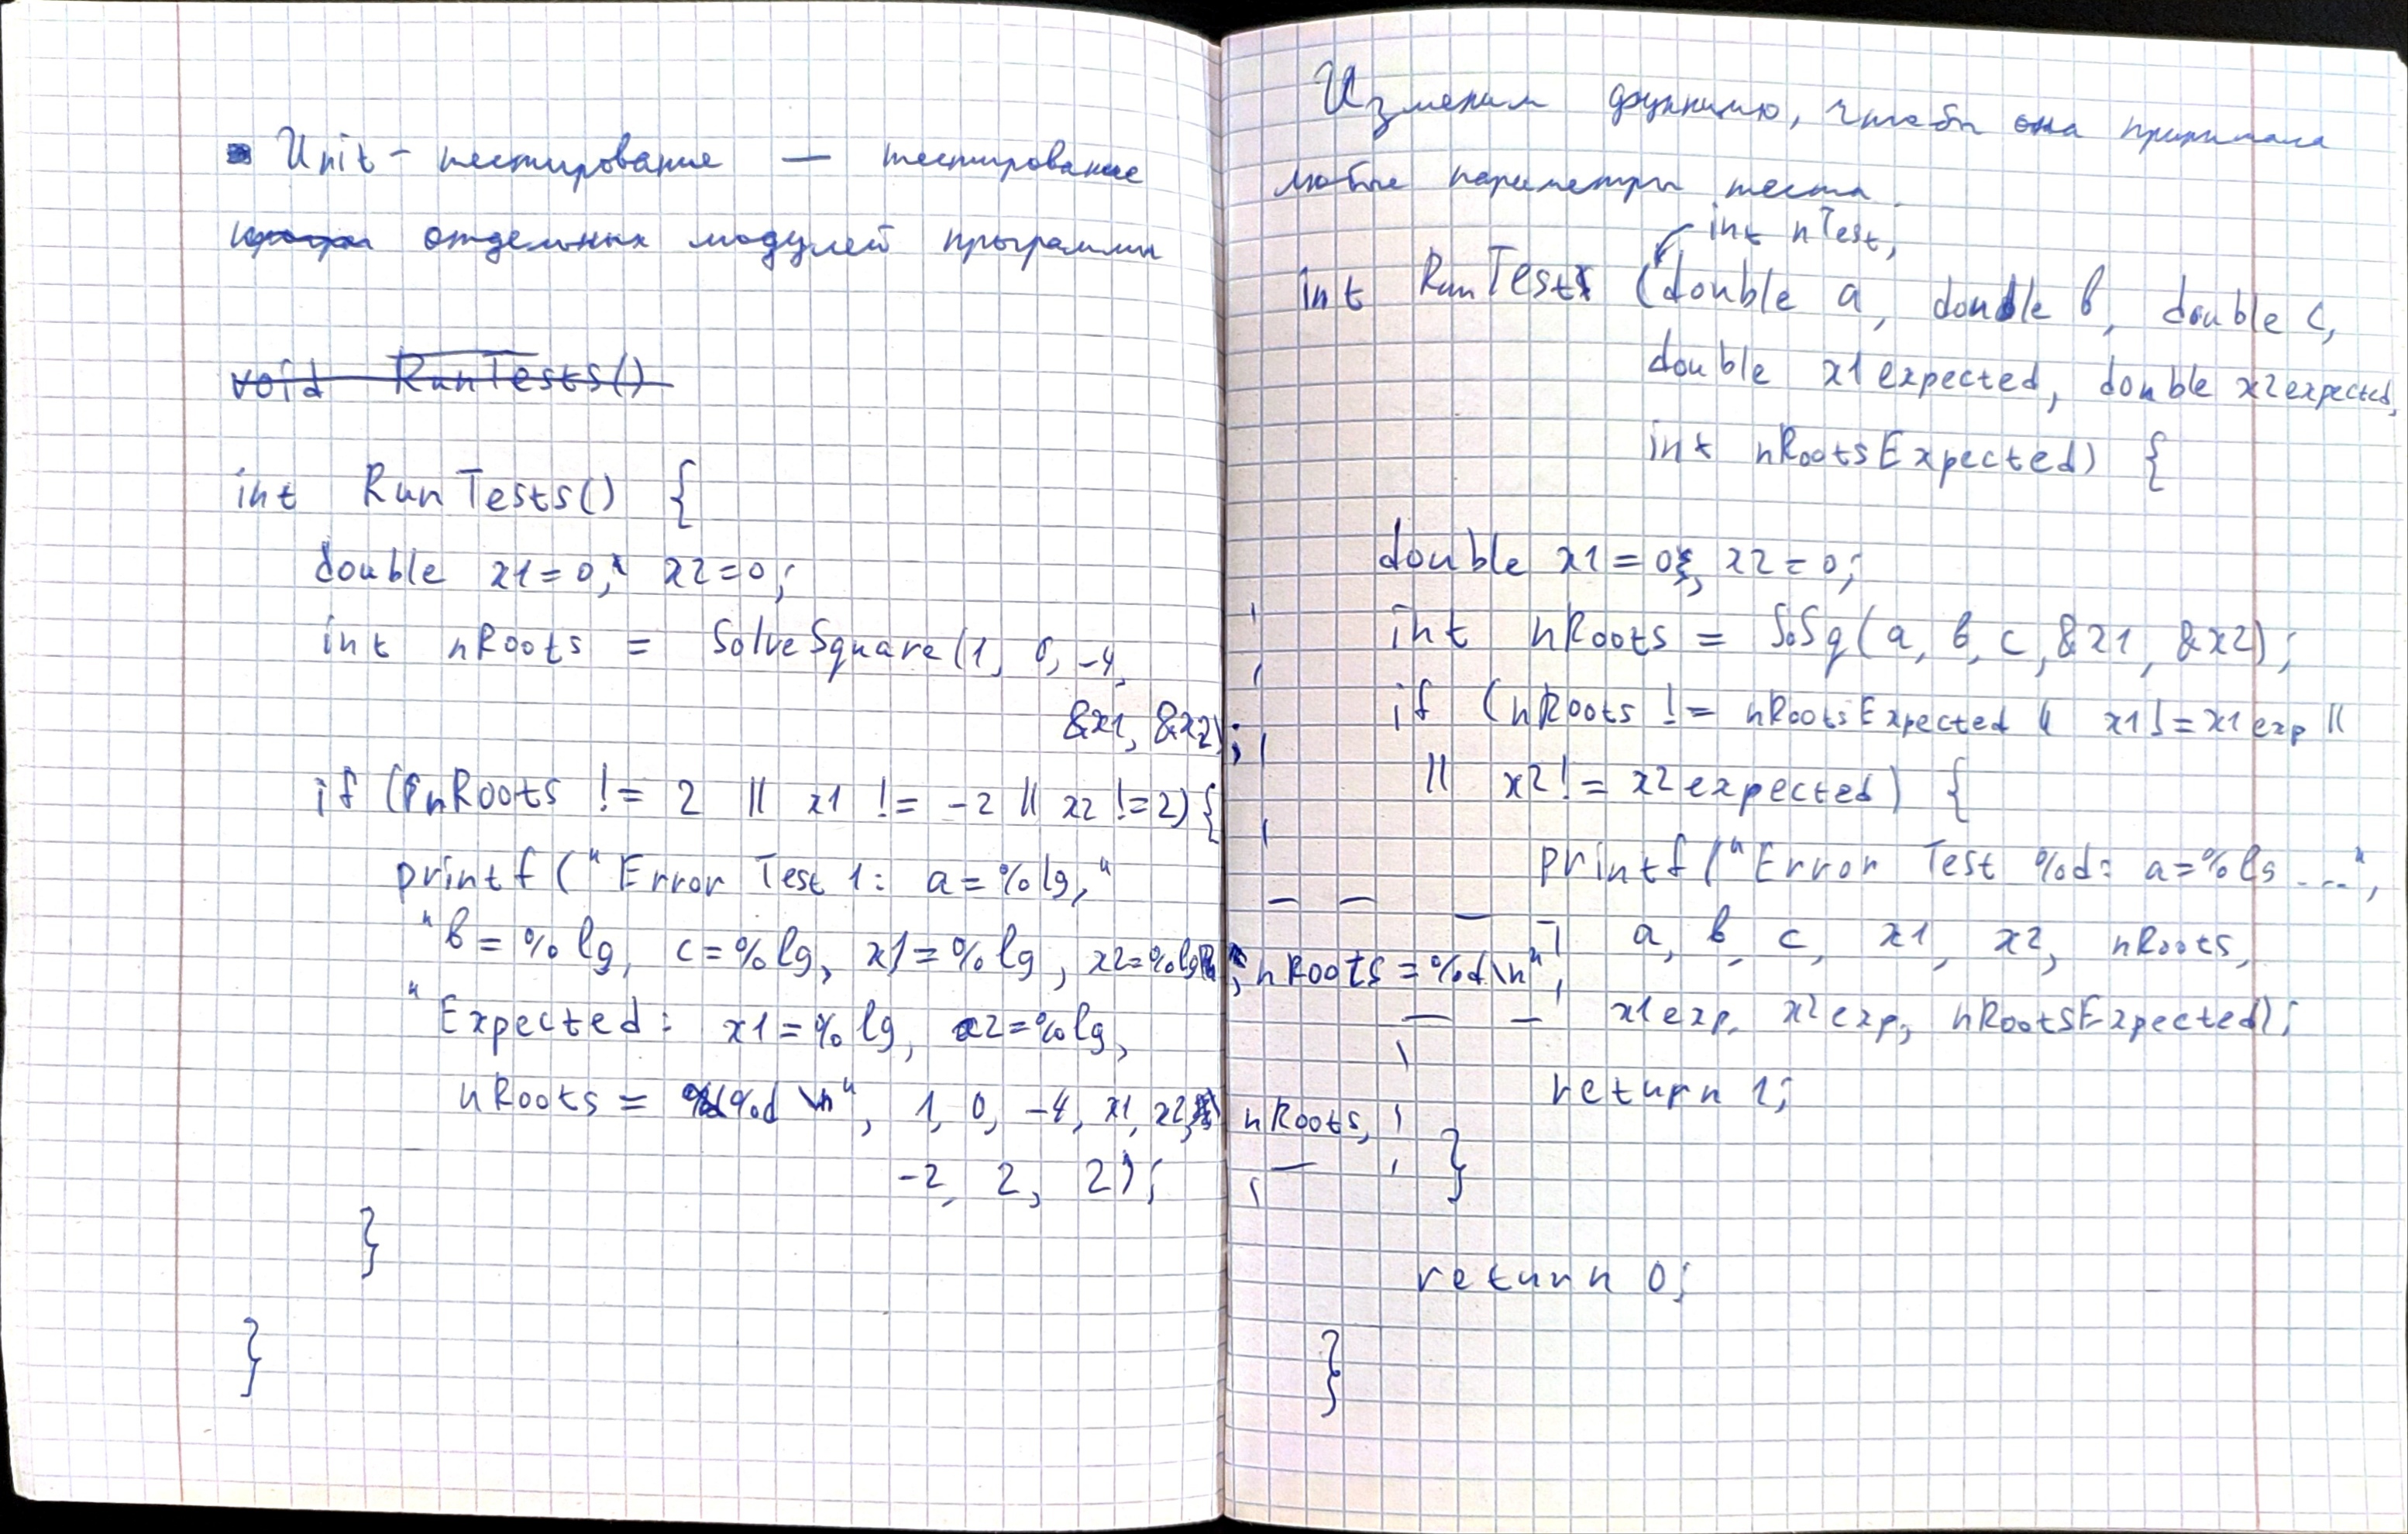 Unit - тестирование — тестирование
отдельных модулей программы
void RunTests()
int RunTests() {
double x1=0, x2=0;
int nRoots = SolveSquare(1, 0, -4,
&x1, &x2);
if (nRoots != 2 || x1 != -2 || x2 != 2) {
printf ("Error Test 1: a=%lg,"
"b=%lg, c=%lg, x1=%lg, x2=%lg, nRoots=%d\n",
"Expected: x1=%lg, x2=%lg,
nRoots = %d \n", 1, 0, -4, x1, x2, nRoots,
-2, 2, 2);
}
}
Изменим функцию, чтобы она принимала
любые параметры теста.
int nTest,
int RunTest (double a, double b, double c,
double x1expected, double x2expected,
int nRootsExpected) {
double x1=0, x2=0;
int nRoots = SoSq(a, b, c, &x1, &x2);
if (nRoots != nRootsExpected || x1 != x1exp ||
|| x2 != x2expected) {
printf("Error Test %d: a=%lg ...",
a, b, c, x1, x2, nRoots,
x1exp, x2exp, nRootsExpected);
return 1;
}
return 0;
}